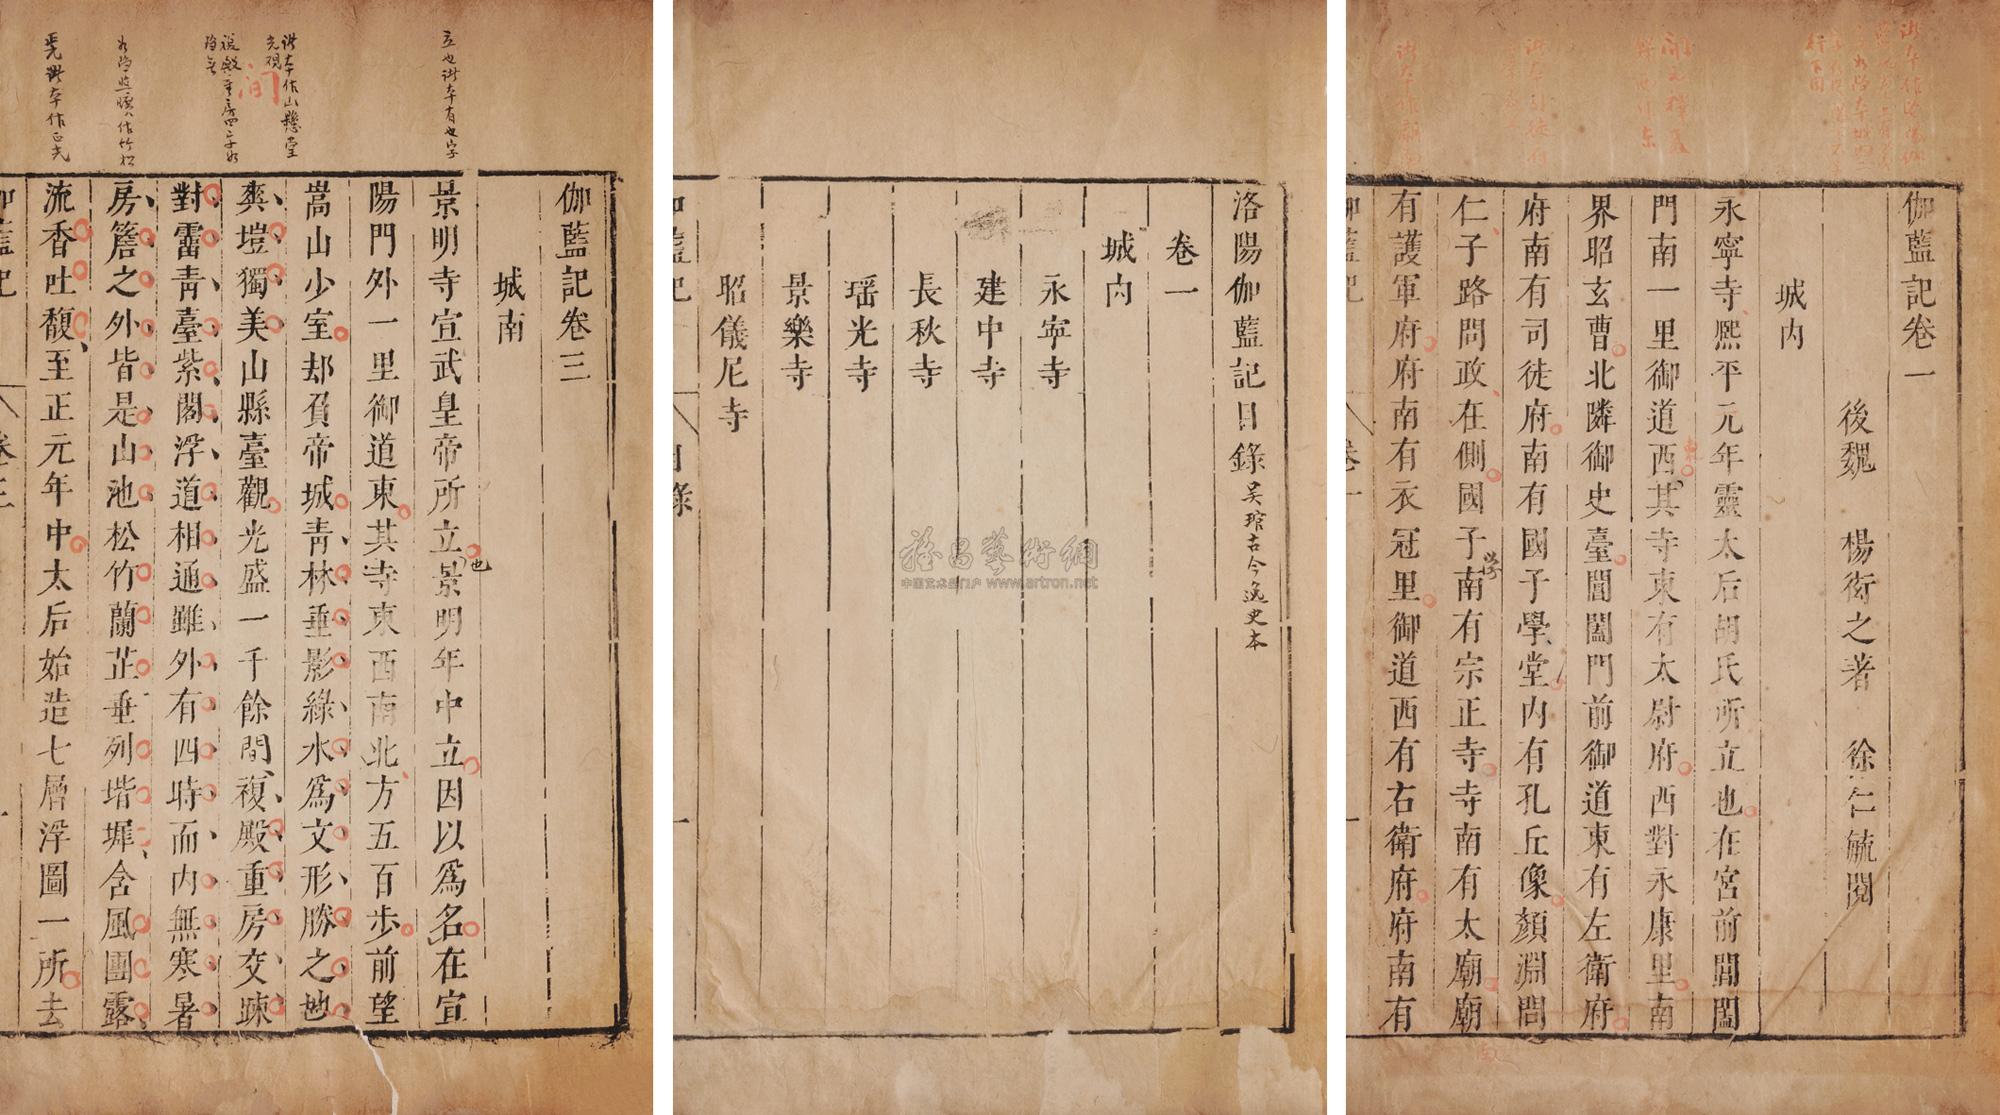 伽藍記卷一
後魏 楊衒之著 徐仁毓閱
城内
永寧寺熙平元年靈太后胡氏所立也在宮前閶闔
門南一里御道西其寺東有太尉府西對永康里南
界昭玄曹北隣御史臺閶闔門前御道東有左衛府
府南有司徒府南有國子學堂内有孔丘像顏淵問
仁子路問政在側國子南有宗正寺寺南有太廟廟
有護軍府府南有衣冠里御道西有右衛府府南有
洛陽伽藍記目錄 吴琯古今逸史本
卷一
城内
永寧寺
建中寺
長秋寺
瑶光寺
景樂寺
昭儀尼寺
雅昌藝術網
中国艺术品门户 www.artron.net
立也汫本有也字
伽藍記卷三
城南
景明寺宣武皇帝所立景明年中立因以爲名在宣
也
陽門外一里御道東其寺東西南北方五百步前望
嵩山少室却負帝城青林垂影綠水爲文形勝之地
爽塏獨美山縣臺觀光盛一千餘間複殿重房交疎
對霤青臺紫閣浮道相通雖外有四時而内無寒暑
房簷之外皆是山池松竹蘭芷垂列堦墀含風團露
流香吐馥至正元年中太后始造七層浮圖一所去